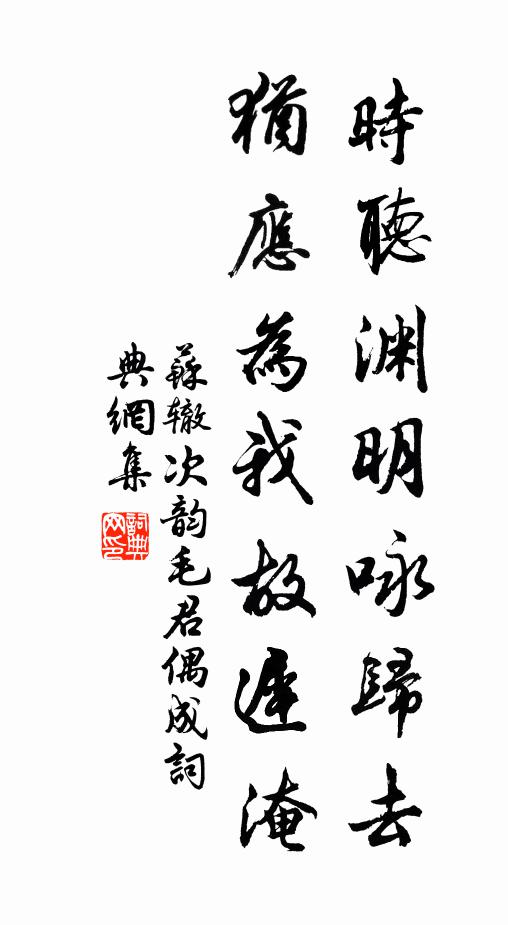 時聽渊明咏歸去
猶應為我故遲淹
蘇辙次韵毛君偶成詞
典網集
詞典网印